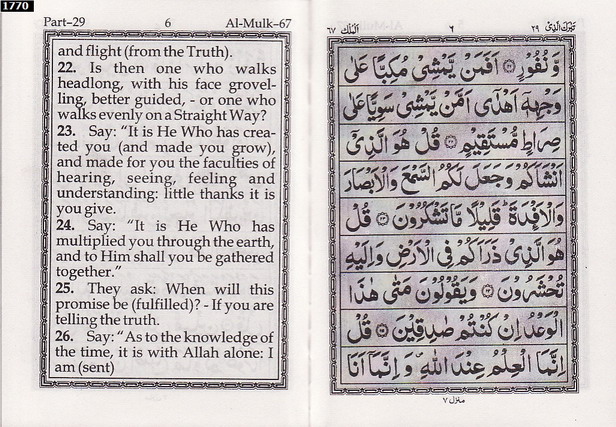 1770
Part-29 6 Al-Mulk-67
and flight (from the Truth).
22. Is then one who walks
headlong, with his face grovel-
ling, better guided, - or one who
walks evenly on a Straight Way?
23. Say: “It is He Who has crea-
ted you (and made you grow),
and made for you the faculties of
hearing, seeing, feeling and
understanding: little thanks it is
you give.
24. Say: “It is He Who has
multiplied you through the earth,
and to Him shall you be gathered
together.”
25. They ask: When will this
promise be (fulfilled)? - If you are
telling the truth.
26. Say: “As to the knowledge of
the time, it is with Allah alone: I
am (sent)
تبٰرك الذی ٢٩ ٦ الملك ٦٧
وَّنُفُوْرٍ ۝٢١ اَفَمَنْ يَّمْشِىْ مُكِبًّا عَلٰى
وَجْهِهٖٓ اَهْدٰٓى اَمَّنْ يَّمْشِىْ سَوِيًّا عَلٰى
صِرَاطٍ مُّسْتَقِيْمٍ ۝٢٢ قُلْ هُوَ الَّذِىْٓ
اَنْشَاَكُمْ وَجَعَلَ لَكُمُ السَّمْعَ وَالْاَبْصَارَ
وَالْاَفْـِٕدَةَ ؕ قَلِيْلًا مَّا تَشْكُرُوْنَ ۝٢٣ قُلْ
هُوَ الَّذِىْ ذَرَاَكُمْ فِى الْاَرْضِ وَاِلَيْهِ
تُحْشَرُوْنَ ۝٢٤ وَيَقُوْلُوْنَ مَتٰى هٰذَا
الْوَعْدُ اِنْ كُنْتُمْ صٰدِقِيْنَ ۝٢٥ قُلْ
اِنَّمَا الْعِلْمُ عِنْدَ اللّٰهِ ۪ وَاِنَّمَاۤ اَنَا
منزل ٧